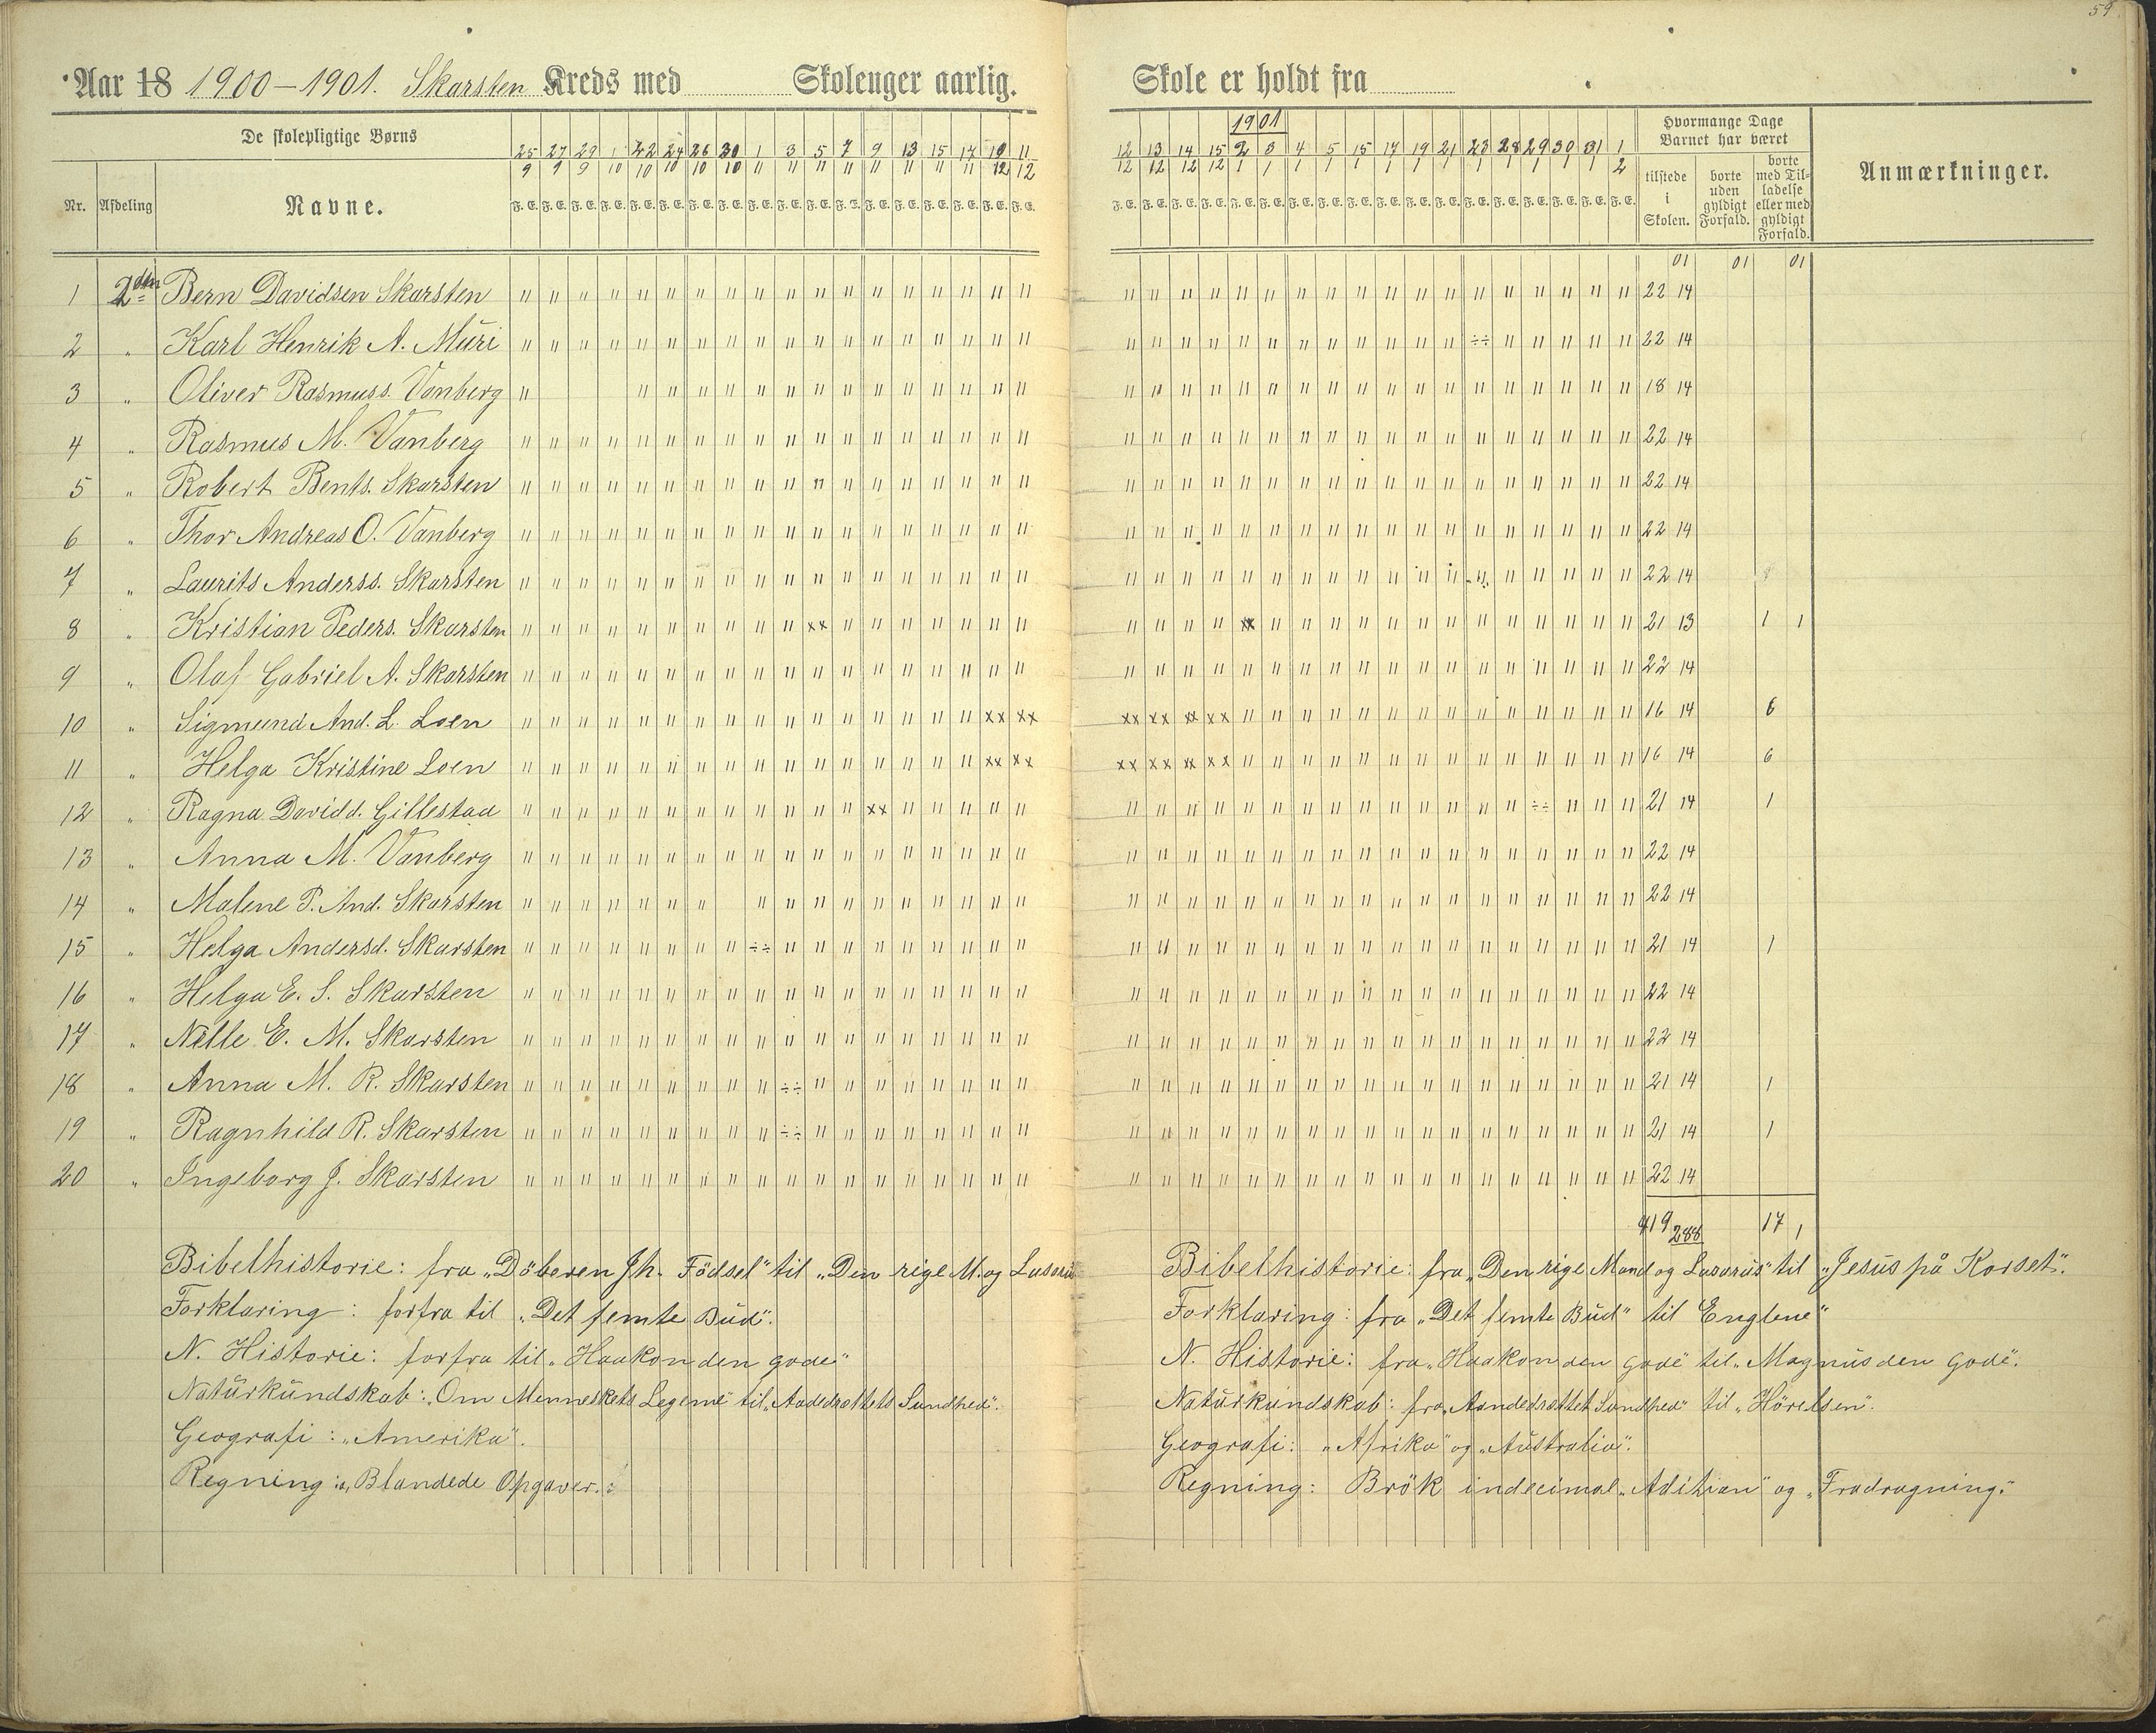 59
Aar 18 1900-1901. Skarsten Kreds med Skoleuger aarlig. Skole er holdt fra
De skolepligtige Børns
Nr. Afdeling Navne.
25 27 29 1 22 24 26 30 1 3 5 7 9 13 15 17 10 11
9 9 9 10 10 10 10 10 11 11 11 11 11 11 11 11 12 12
F. E. F. E. F. E. F. E. F. E. F. E. F. E. F. E. F. E. F. E. F. E. F. E. F. E. F. E. F. E. F. E. F. E. F. E.
1901
12 13 14 15 2 3 4 5 15 17 19 21 23 28 29 30 31 1
12 12 12 12 1 1 1 1 1 1 1 1 1 1 1 1 1 2
F. E. F. E. F. E. F. E. F. E. F. E. F. E. F. E. F. E. F. E. F. E. F. E. F. E. F. E. F. E. F. E. F. E. F. E.
Hvormange Dage
Barnet har været
tilstede
i
Skolen.
borte
uden
gyldigt
Forfald.
borte
med Til-
ladelse
eller med
gyldigt
Forfald.
Anmærkninger.
01 01 01
1 2den Bern Davidsen Skarsten " " " " " " " " " " " " " " " " " " " " " " " " " " " " " " " " " " " " 22 14
2 " Karl Henrik A. Muri " " " " " " " " " " " " " " " " " " " " " " " " " " " " " " ÷÷ " " " " " 22 14
3 " Oliver Rasmuss. Vanberg " " " " " " " " " " " " " " " " " " " " " " " " " " " " " " " " " 18 14
4 " Rasmus M. Vanberg " " " " " " " " " " " " " " " " " " " " " " " " " " " " " " " " " " " " 22 14
5 " Robert Bents. Skarsten " " " " " " " " " " " " " " " " " " " " " " " " " " " " " " " " " " " " 22 14
6 " Thor Andreas O. Vanberg " " " " " " " " " " " " " " " " " " " " " " " " " " " " " " " " " " " " 22 14
7 " Laurits Anderss. Skarsten " " " " " " " " " " " " " " " " " " " " " " " " " " " " " " " " " " " " 22 14
8 " Kristian Peders. Skarsten " " " " " " " " " " xx " " " " " " " " " " " xx " " " " " " " " " " " " " 21 13 1 1
9 " Olaf Gabriel A. Skarsten " " " " " " " " " " " " " " " " " " " " " " " " " " " " " " " " " " " " 22 14
10 " Sigmund And. L. Loen " " " " " " " " " " " " " " " " xx xx xx xx xx xx " " " " " " " " " " " " " " 16 14 6
11 " Helga Kristine Loen " " " " " " " " " " " " " " " " xx xx xx xx xx xx " " " " " " " " " " " " " " 16 14 6
12 " Ragna Davidd. Gillestad " " " " " " " " " " " " xx " " " " " " " " " " " " " " " " " " " ÷÷ " " " 21 14 1
13 " Anna M. Vanberg " " " " " " " " " " " " " " " " " " " " " " " " " " " " " " " " " " " " 22 14
14 " Malene P. And. Skarsten " " " " " " " " " " " " " " " " " " " " " " " " " " " " " " " " " " " 22 14
15 " Helga Andersd. Skarsten " " " " " " " " ÷÷ " " " " " " " " " " " " " " " " " " " " " " " " " " " 21 14 1
16 " Helga E. S. Skarsten " " " " " " " " " " " " " " " " " " " " " " " " " " " " " " " " " " " " 22 14
17 " Nille E. M. Skarsten " " " " " " " " " " " " " " " " " " " " " " " " " " " " " " " " " " " " 22 14
18 " Anna M. R. Skarsten " " " " " " " " " ÷÷ " " " " " " " " " " " " " " " " " " " " " " " " " " 21 14 1
19 " Ragnhild R. Skarsten " " " " " " " " " ÷÷ " " " " " " " " " " " " " " " " " " " " " " " " " " 21 14 1
20 " Ingeborg J. Skarsten " " " " " " " " " " " " " " " " " " " " " " " " " " " " " " " " " " " " 22 14
419 288 17 1
Bibelhistorie: fra „Döberen Jh. Födsel" til „Den rige M. og Lasarus
Forklaring: forfra til „Det femte Bud".
N. Historie: forfra til „Haakon den gode"
Naturkundskab: „Om Menneskets Legeme" til „Aadedrættets Sundhed".
Geografi: „Amerika".
Regning: „Blandede Opgaver."
Bibelhistorie: fra „Den rige Mand og Lasarus" til „Jesus på Korset".
Forklaring: fra „Det femte Bud" til Englene"
N. Historie: fra „Haakon den gode" til „Magnus den gode".
Naturkundskab: fra „Aandedrættet Sundhed" til „Hörelsen".
Geografi: „Afrika" og „Australia".
Regning: Brök indecimal „Adition" og „Fradragning."